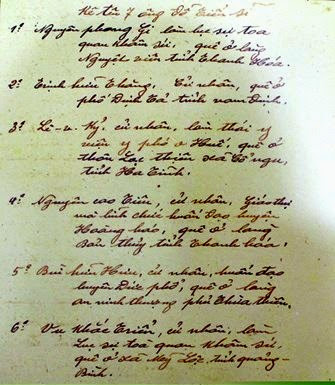 Kê tên 7 ông đỗ Tiến sĩ
1º Nguyễn phong Di làm lục sự tòa
quan khâm sứ, quê ở làng
Nguyệt viên tỉnh Thanh Hóa.
2º Trịnh hữu Thăng, Cử nhân, quê ở
phố Định Tả tỉnh nam Định.
3º Lê-v. Kỷ, cử nhân, làm thái y
viện y phó ở Huế, quê ở
thôn Lạc thiện xã Cổ ngu,
tỉnh Hà Tĩnh.
4º Nguyễn cao Tiêu, cử nhân, Giáo thụ
mới lĩnh chức huấn đạo huyện
Hoằng hóa, quê ở làng
tỉnh Thanh hóa.
5º Bùi hữu Hưu, cử nhân, huấn đạo
huyện Đức phổ, quê ở làng
an ninh thượng phủ Thừa thiên.
6º Vũ khắc Triển, cử nhân, làm
Lục sự tòa quan khâm sứ,
quê ở xã Mỹ Lộc tỉnh quảng-
Bình.